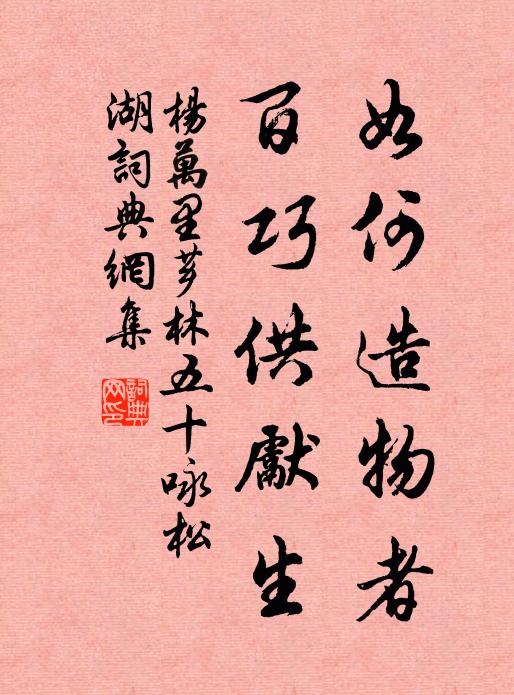 如何造物者
百巧供獻生
楊萬里芗林五十咏松
湖詞典網集
詞典
网印